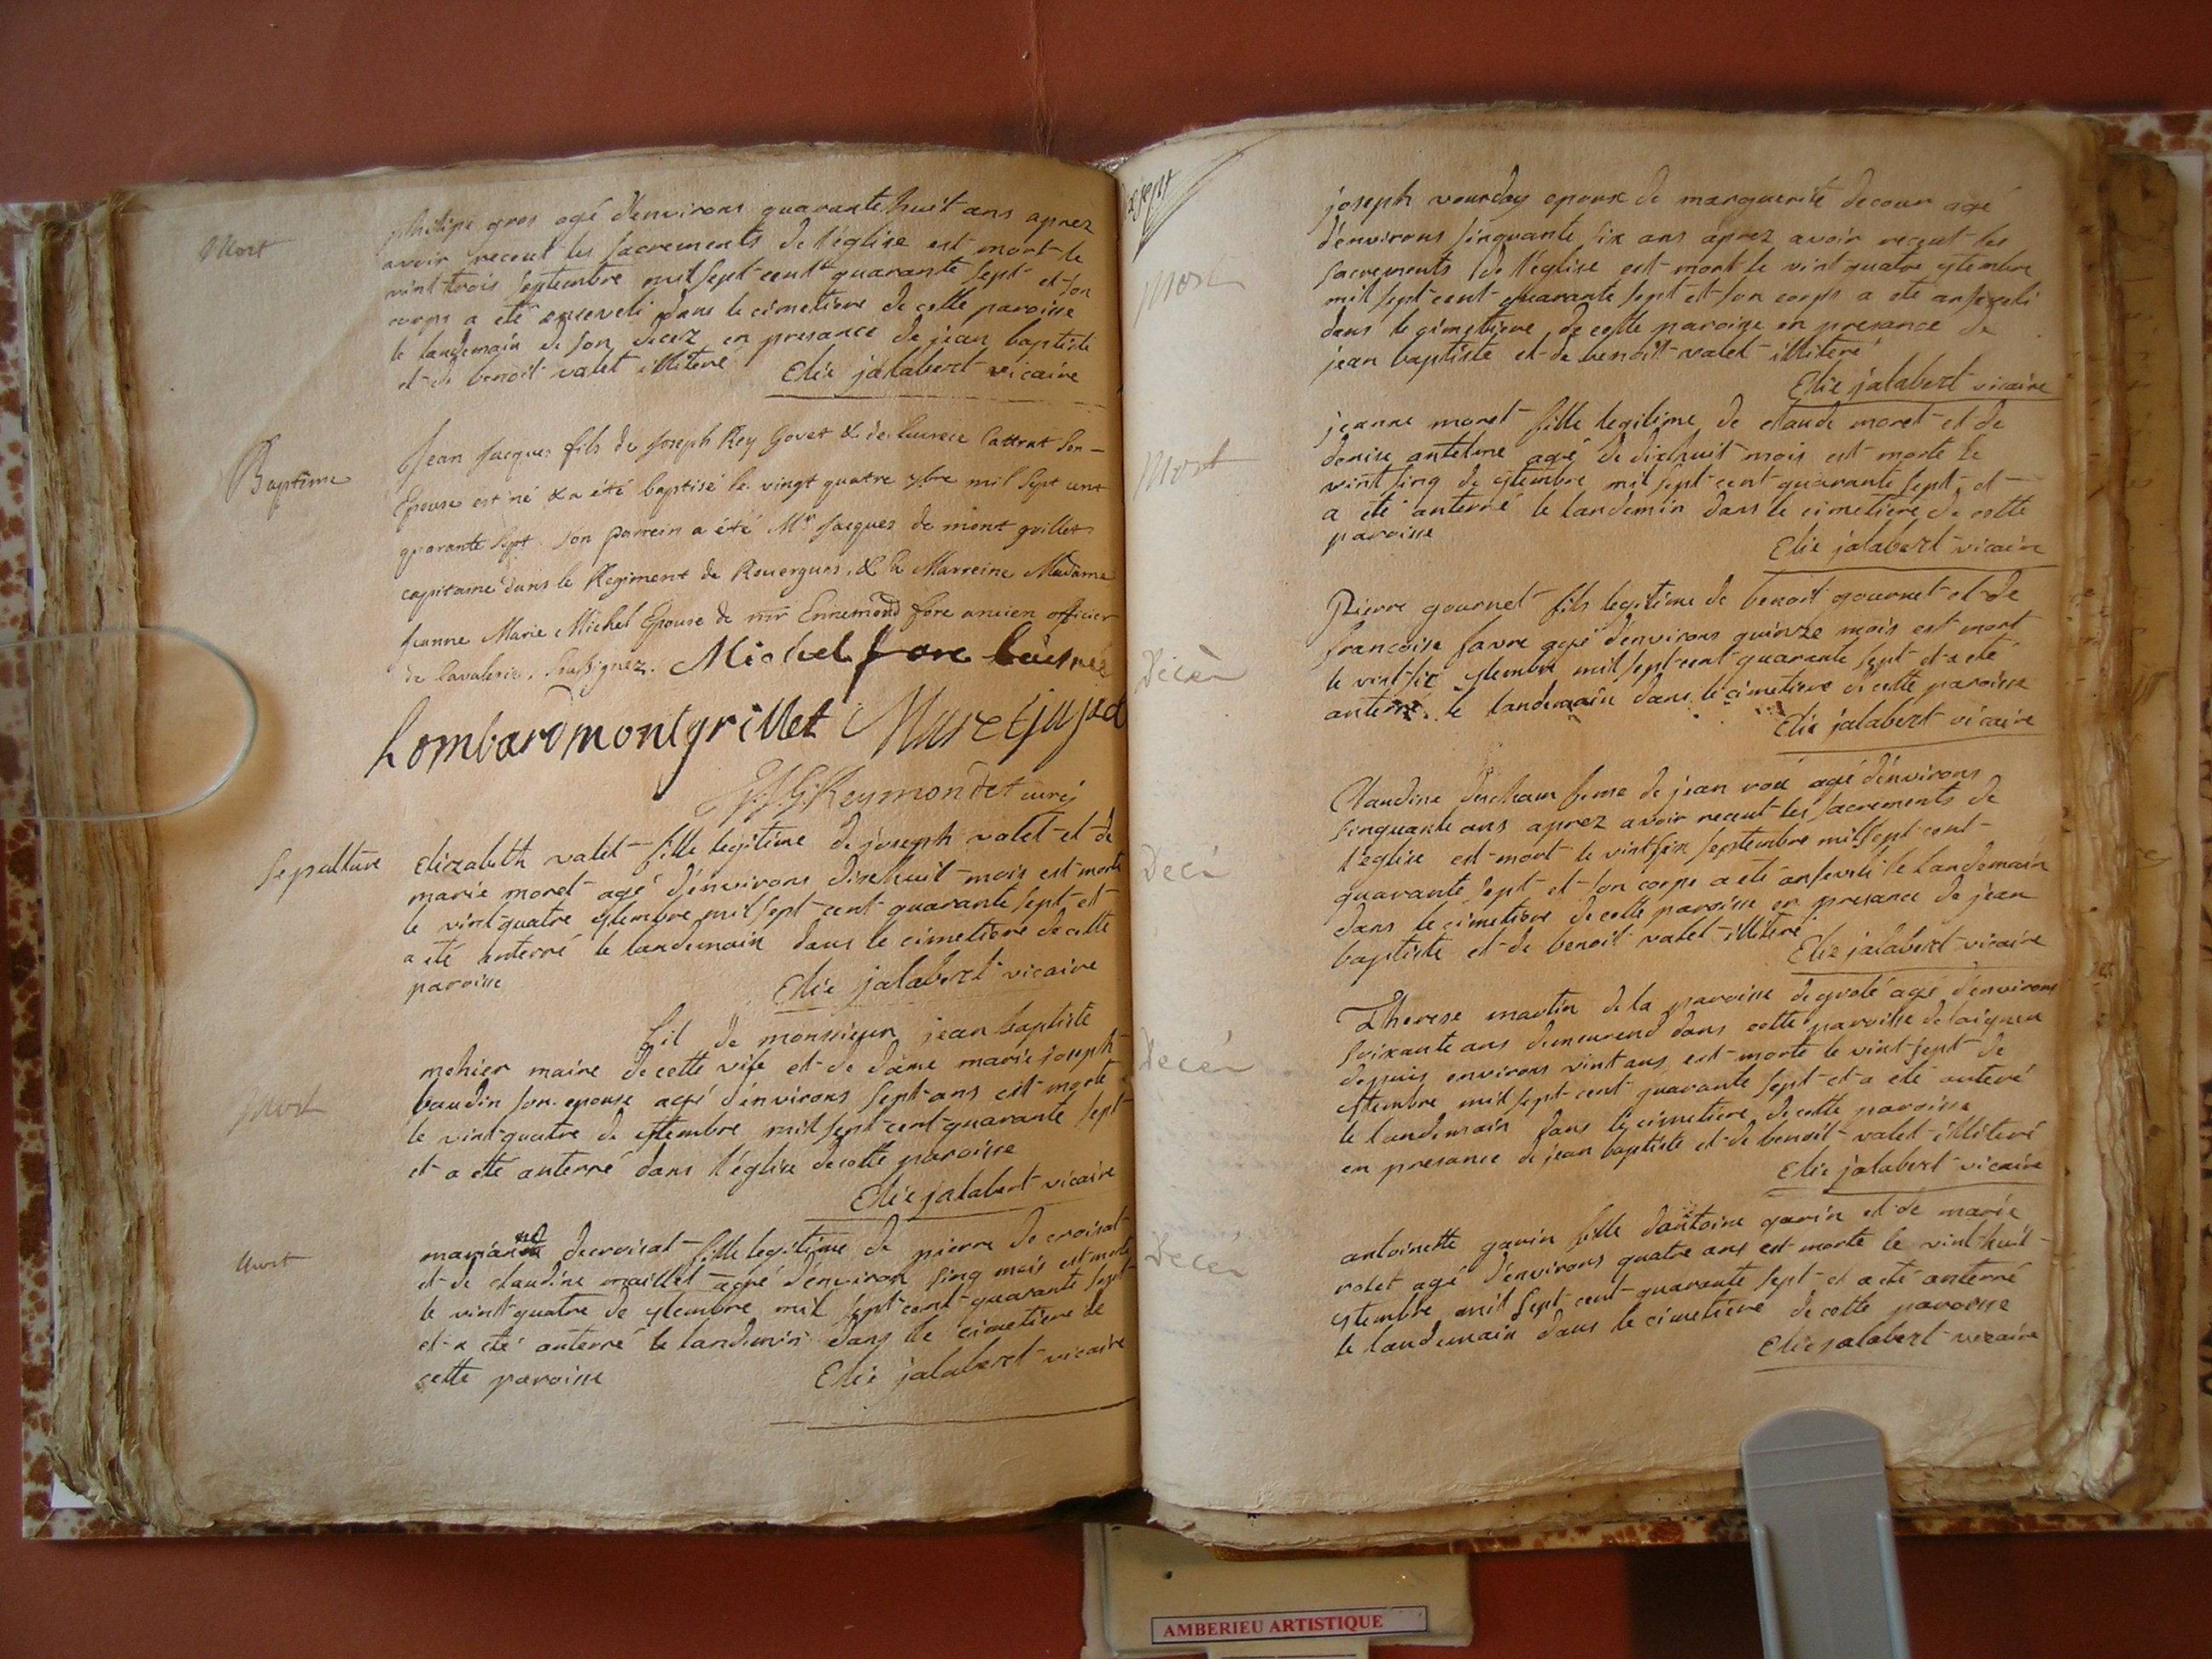 Mort
philipe gros agé d'environs quarante huit ans aprez
avoir receut les sacrements de l'église est mort le
vint trois septembre mil sept cent quarante sept et son
corps a eté enceveli dans le cimetiere de cette paroisse
le landemain de son decez en presance de jean baptiste
et de benoit valet illiteré
Elie jalabert vicaire
Baptême
Jean Jacques fils de Joseph Rey Govet & de son
Epouse est né & a été baptisé le vingt quatre 7bre mil sept cent
quarante sept. son parrein a été Mr Jacques de mont grillet
capitaine dans le Regiment de Rouergues, & la Marreine Madame
Jeanne Marie Michel Epouse de mr Ennemond fore ancien officier
de Cavalerie, soussignez. Michel fore
Lombard montgrillet
Reymondet curé
Sepulture
elizabeth valet fille legitime de joseph valet et de
marie moret agé d'environs dixhuit mois est morte
le vint quatre 7tembre mil sept cent quarante sept et
a eté enterré le landemain dans le cimetiere de cette
paroisse
Elie jalabert vicaire
Mort
fil de monsieur jean baptiste
mehier maire de cette vile et de dame marie joseph
baudin son epouse agé d'environs sept ans est morte
le vint quatre de 7tembre mil sept cent quarante sept
et a etté anterré dans l'église de cette paroisse
Elie jalabert vicaire
Mort
decroisat fille legitime de pierre de croisat
et de claudine maillet agé d'environ sinq mois est morte
le vint quatre de 7tembre mil sept cent quarante sept
et a eté anterré le landemin dans le cimetiere de
cette paroisse
Elie jalabert vicaire
Mort
joseph vourdoy epoux de marguerite decour agé
d'environs sinquante six ans aprez avoir receut les
sacrements de l'église est mort le vint quatre 7tembre
mil sept cent quarante sept et son corps a eté anseveli
dans le cimetiere de cette paroisse en presance de
jean baptiste et de benoit valet illiteré
Elie jalabert vicaire
Mort
jeanne moret fille legitime de claude moret et de
denise antelme agé de dixhuit mois est morte le
vint sinq de 7tembre mil sept cent quarante sept et
a eté anterré le landemin dans le cimetiere de cette
paroisse
Elie jalabert vicaire
Décèr
Pierre gournet fils legitime de benoit gournet et de
francoise favre agé d'environs quinze mois est mort
le vint six 7tembre mil sept cent quarante sept et a eté
anterré le landemain dans le cimetiere de cette paroisse
Elie jalabert vicaire
Decé
Claudine ducham feme de jean roux agé d'environs
sinquante ans aprez avoir receut les sacrements de
l'église est mort le vint six septembre mil sept cent
quarante sept et son corps a eté anseveli le landemain
dans le cimetiere de cette paroisse en presance de jean
baptiste et de benoit valet illiteré
Elie jalabert vicaire
Decér
Therese martin de la paroisse de agé d'environs
soixante ans demeurend dans cette paroisse de laigneu
depuis environs vint ans est morte le vint sept de
7tembre mil sept cent quarante sept et a eté anteré
le landemain dans le cimetiere de cette paroisse
en presance de jean baptiste et de benoit valet illiteré
Elie jalabert vicaire
Decér
antoinette gavin fille dantoine gavin et de marie
rolet agé d'environs quatre ans est morte le vint huit
7tembre mil sept cent quarante sept et a eté anterré
le landemain dans le cimetiere de cette paroisse
Elie jalabert vicaire
AMBERIEU ARTISTIQUE